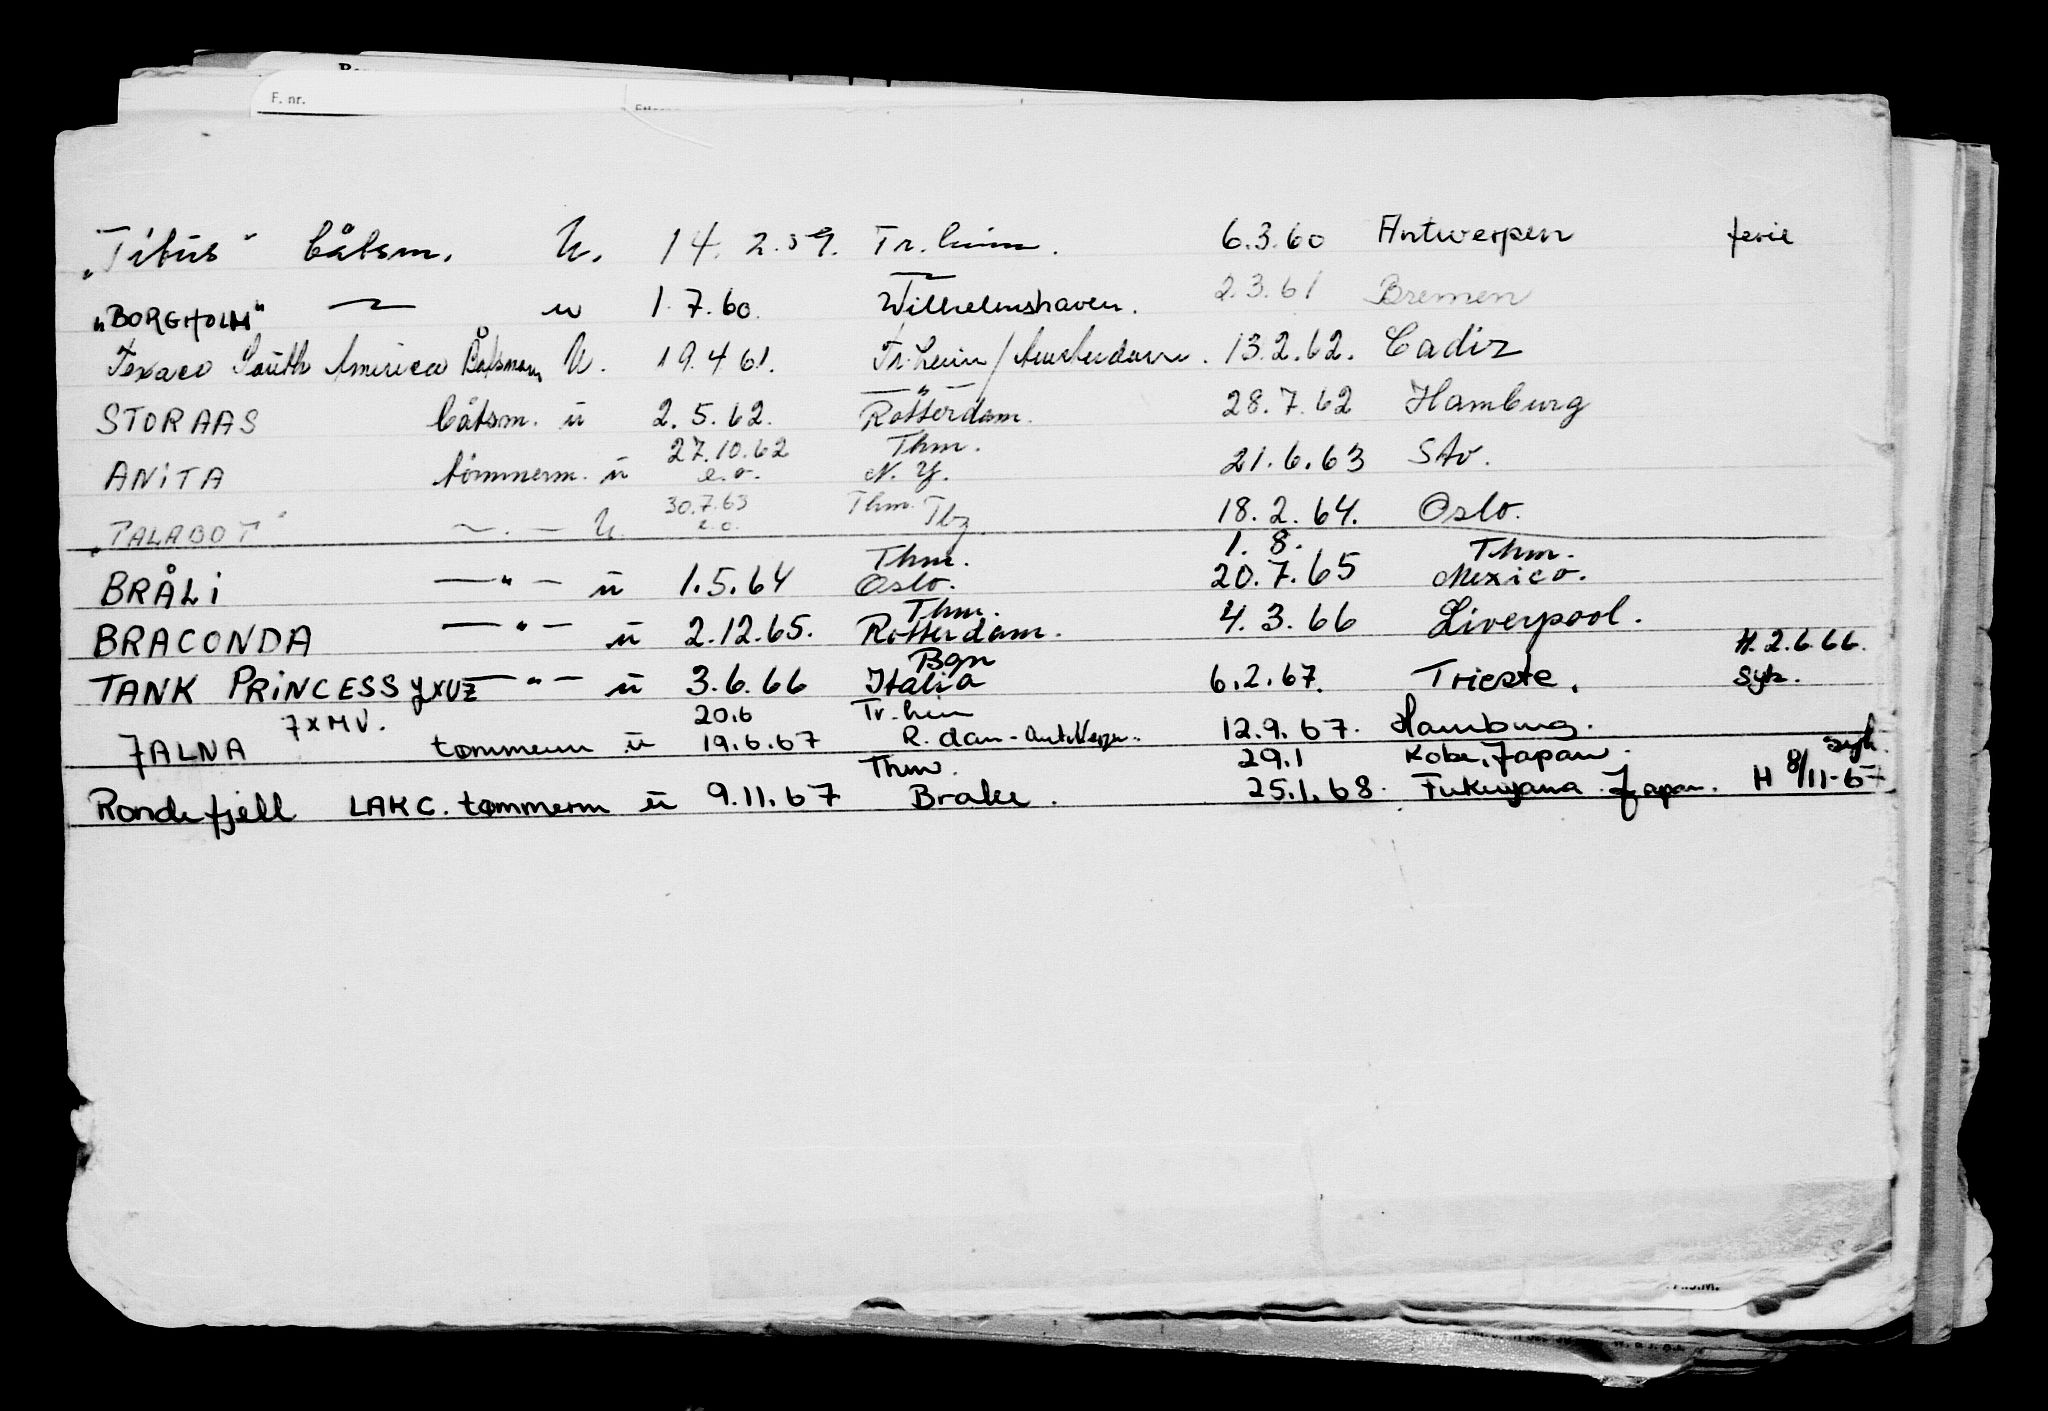 F. nr.
„Titus" båtsm. U. 14.2.59. Tr.heim. 6.3.60 Antwerpen ferie
„BORGHOLM" — u 1.7.60. Wilhelmshaven. 2.3.61 Bremen
Texaco South America Båtsmann U. 19.4.61. Tr.heim/Amsterdam. 13.2.62. Cadiz
STORAAS båtsm. u 2.5.62. —"— Rotterdam. 28.7.62 Hamburg
ANITA tömmerm. u 27.10.62 e.o. Thm. N.Y. 21.6.63 Stv.
„TALABOT" —.— U. 30.7.63 e.o. Thm. Tbg. 18.2.64. Oslo.
BRÅLI —"— u 1.5.64 Thm. Oslo. 1.8. 20.7.65 Thm. Mexico.
BRACONDA —"— u 2.12.65. Thm. Rotterdam. 4.3.66 Liverpool.
TANK PRINCESS —"— u 3.6.66 Bgn Italia 6.2.67. Trieste. H. 2.6.66. Syk.
JALNA tømmerm u 20.6 19.6.67 Tr.heim R.dam - Antwerpn. 12.9.67. Hamburg. syk.
Rondefjell LAKC. tømmerm u 9.11.67 Thm. Brake. 29.1 25.1.68. Kobe, Japan. Fukuyama Japan. H 8/11-67